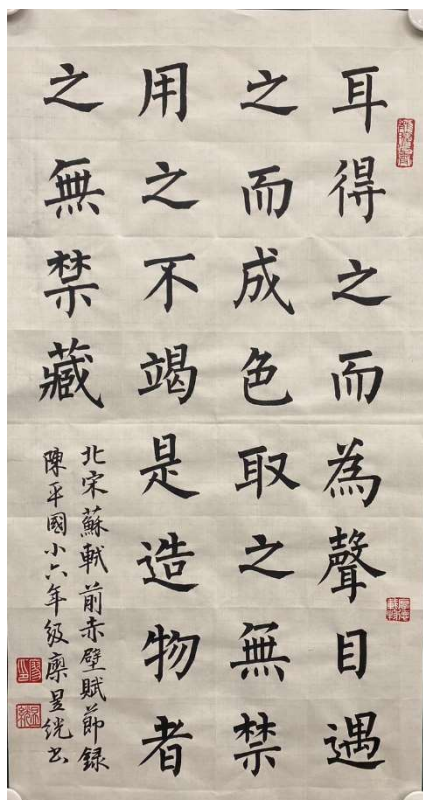 耳得之而為聲目遇
之而成色取之無禁
用之不竭是造物者
之無禁藏
北宋蘇軾前赤壁賦節録
陳平國小六年級廖昱書